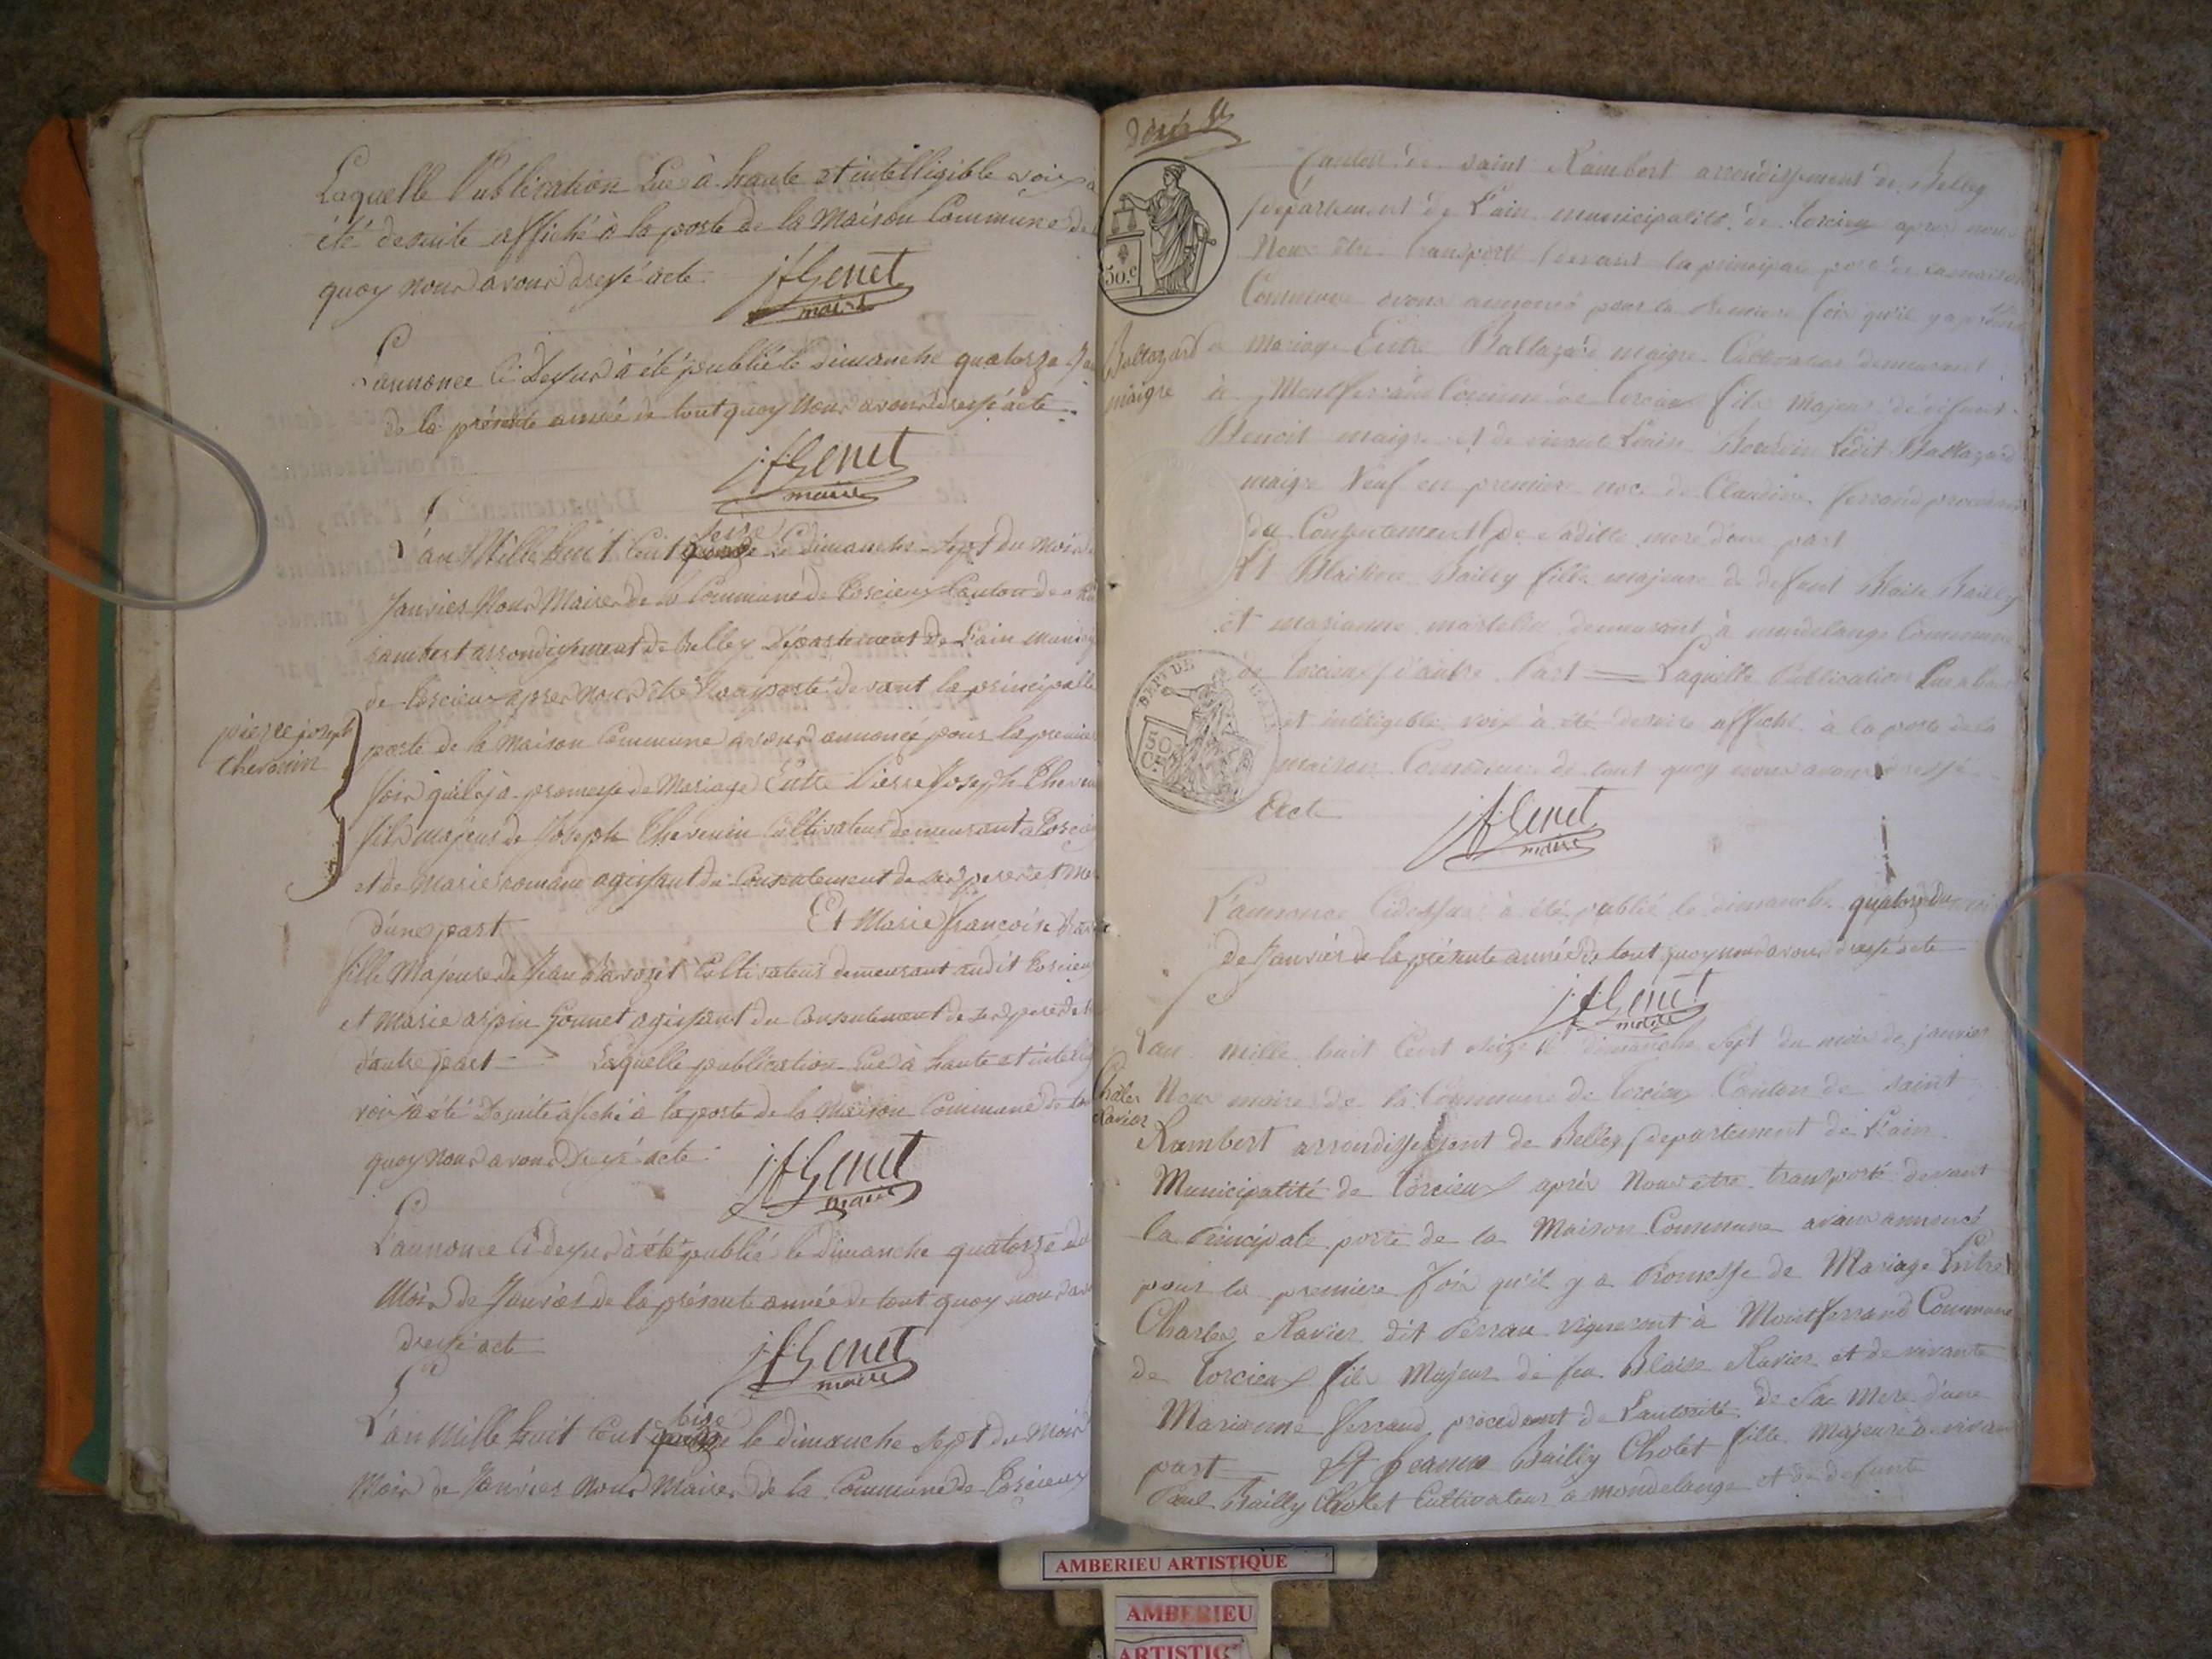 Laquelle Publication Lue à haute et intelligible voix a
été de suite affiché à la porte de la Maison Commune de
quoy nous avons dressé acte
jfGenet
maire
L'annonce Ci Dessus à été publié le dimanche quatorze
de la présente année de tout quoy nous avons dressé acte
jfGenet
maire
L'an Mille huit Cent seize le dimanche sept du mois de
Janvier Nous Maire de la Commune de Torcieux Canton de
Rambert arrondissement de Belley Département de L'ain
de Torcieux après nous être transporté devant la principalle
pierre joseph
chevenin
porte de la Maison Commune avons annoncé pour la premiere
fois quil y à promesse de Mariage Entre Pierre Joseph
fils majeur de Joseph Chevenin Cultivateur demeurant à
et de Marie agissant du Consentement de ses pere et
d'une part Et Marie françoise
fille Majeure de Jean Cultivateur demeurant audit Torcieux
et Marie Gonnet agissant du Consentement de ses pere et
d'autre part Laquelle publication Lue à haute et
voix à été De suite affiché à la porte de la Maison Commune de
quoy nous avons Dressé acte
jfGenet
maire
L'annonce Ci dessus à été publié le Dimanche quatorze du
Mois de Janvier de la présente année de tout quoy nous
dressé acte
jfGenet
maire
L'an Mille huit Cent seize le dimanche sept du Mois
Mois de Janvier nous Maire de la Commune de Torcieux
50.c
Canton de saint Rambert arrondissement de Belley
département de L'ain municipalité de Torcieu apres
Nous être transporté devant la principale porte de la maison
Commune avons annoncé pour la Premiere fois qu'il y a
Baltazard
maigre
de Mariage Entre Baltazard maigre Cultivateur demeurant
à Montferrand Commune de Torcieu fils Majeur de défunt
Benoit maigre et de vivante Bourdin Ledit Baltazard
maigre Veuf en premiere noce de Claudine Ferrand
du Consentement de sadite mere d'une part
Et Bailly fille majeure de defunt Blaise Bailly
et marianne demeurant à mondelange Commune
de Torcieux d'autre Part Laquelle Publication
et intéligible voix à été de suite affiché à la porte de la
maison Commune de tout quoy nous avons dressé
Acte
jfGenet
maire
L'annonce Cidessus à été publié le dimanche quatorze du
de Janvier de la présente année de tout quoy nous avons dressé acte
jfGenet
maire
L'an mille huit Cent seize le dimanche sept du mois de janvier
Charles
Ravier
Nous maire de la Commune de Torcieux Canton de saint
Rambert arrondissement de Belley département de L'ain
Municipalité de Torcieux après Nous etre transporté devant
la Principale porte de la Maison Commune avons annoncé
pour la premiere fois qu'il y a Promesse de Mariage Entre
Charles Ravier dit Perrau vigneront à Montferrand Commune
de Torcieux fils Majeur de feu Blaise Ravier et de vivante
Marianne Ferrand procedant de L'autorité de Sa Mere d'une
part Et Jeanne Bailly Cholet fille Majeure de
Paul Bailly Cholet Cultivateur à mondelange et de defunte
AMBERIEU ARTISTIQUE
AMBERIEU